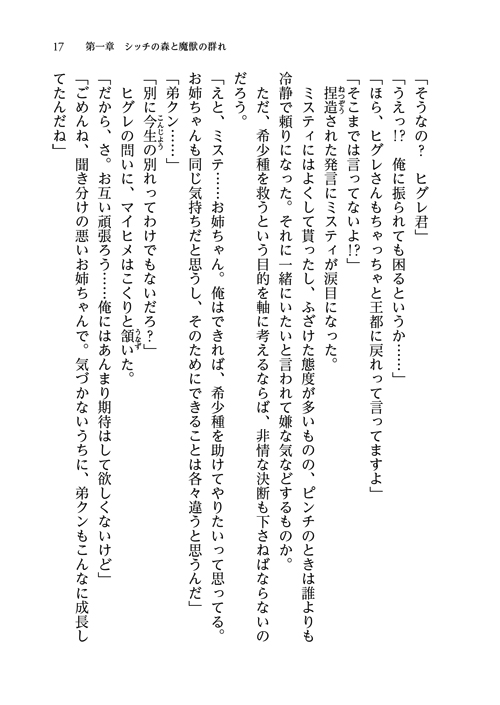 17　第一章　シッチの森と魔獣の群れ
「そうなの？　ヒグレ君」
「うえっ!?　俺に振られても困るというか……」
「ほら、ヒグレさんもちゃっちゃと王都に戻れって言ってますよ」
「そこまでは言ってないよ!?」
捏造された発言にミスティが涙目になった。
ミスティにはよくして貰ったし、ふざけた態度が多いものの、ピンチのときは誰よりも
冷静で頼りになった。それに一緒にいたいと言われて嫌な気などするものか。
ただ、希少種を救うという目的を軸に考えるならば、非情な決断も下さねばならないの
だろう。
「えと、ミステ……お姉ちゃん。俺はできれば、希少種を助けてやりたいって思ってる。
お姉ちゃんも同じ気持ちだと思うし、そのためにできることは各々違うと思うんだ」
「弟クン……」
「別に今生の別れってわけでもないだろ？」
ヒグレの問いに、マイヒメはこくりと頷いた。
「だから、さ。お互い頑張ろう……俺にはあんまり期待はして欲しくないけど」
「ごめんね、聞き分けの悪いお姉ちゃんで。気づかないうちに、弟クンもこんなに成長し
てたんだね」